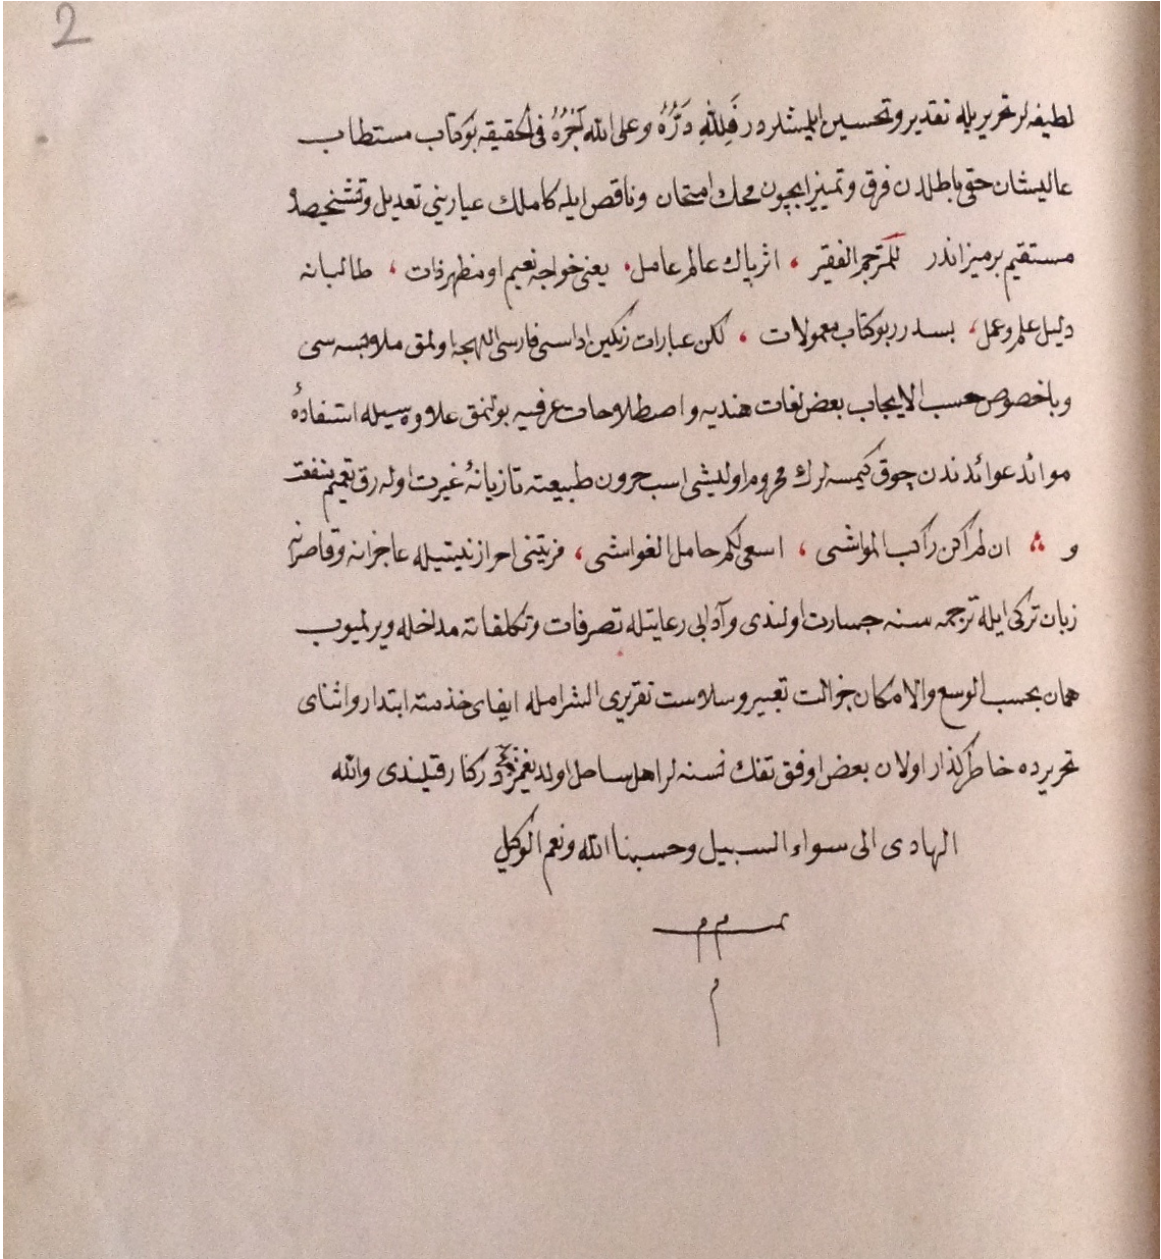 2
لطیفه لر تحریریله تقدیر و تحسین ایلمشلردر فَلِلّٰهِ دَرُّهُ وعلی الله اَجْرُهُ فی الحقیقه بو کتاب مستطاب
عالیشان حقی باطلدن فرق و تمییز ایچون محك امتحان و ناقص ایله کاملك عیارینی تعدیل و تشخیصده
مستقیم بر میزاندر لمترجم الفقیر ، اثر پاك عالم عامل، یعنی خواجه نعیم او مظهر ذات ، طالبانه
دلیل علم و عمل، بسدر بو کتاب معمولات ، لکن عبارات رنکین اداسی فارسی اللهجه اولمق ملابسه سی
و باخصوص حسب الایجاب بعض لغات هندیه و اصطلاحات عرفیه بولنمق علاوه سیله استفادهٔ
موائد عوائدندن چوق کیمسه لرك محروم اولیشی اسب حرون طبیعته تازیانهٔ غیرت اوله رق تعمیم منفعت
و ؞ ان لم اکن راکب المواشی ، اسعی لکم حامل الغواشی ، مزیتنی احراز نیتیله عاجزانه و قاصرانه
زبان ترکی ایله ترجمه سنه جسارت اولندی و آدابی رعایتله تصرفات و تکلفاته مدخله ویرلمیوب
همان بحسب الوسع والامکان جزالت تعبیر و سلاست تقریری التزامله ایفای خدمته ابتدار و اثنای
تحریرده خاطرکذار اولان بعض اوفق تفك نسنه لر اهل ساحل اولدیغمزدن درکنار قیلندی والله
الهادی الی سواء السبیل وحسبنا الله ونعم الوکیل
تمــم م
م